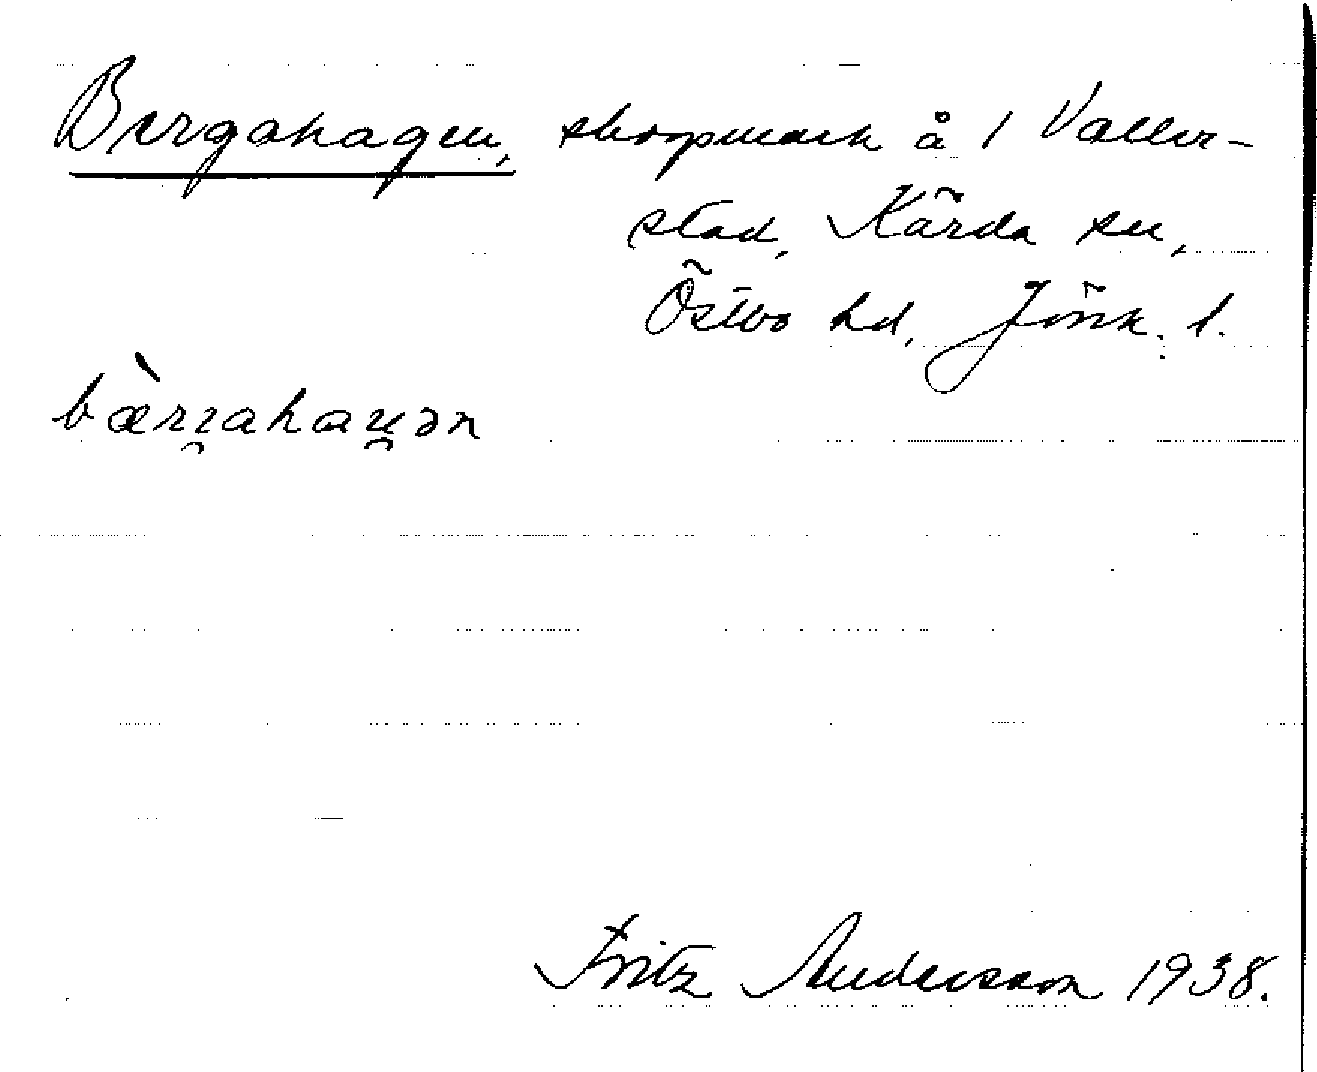 Bergahagen, skogsmark å 1 Valler-
stad, Kärda sn,
Östbo hd, Jönk. l.
bæ̀rɪ̯ahau̯ən
Fritz Andersson 1938.